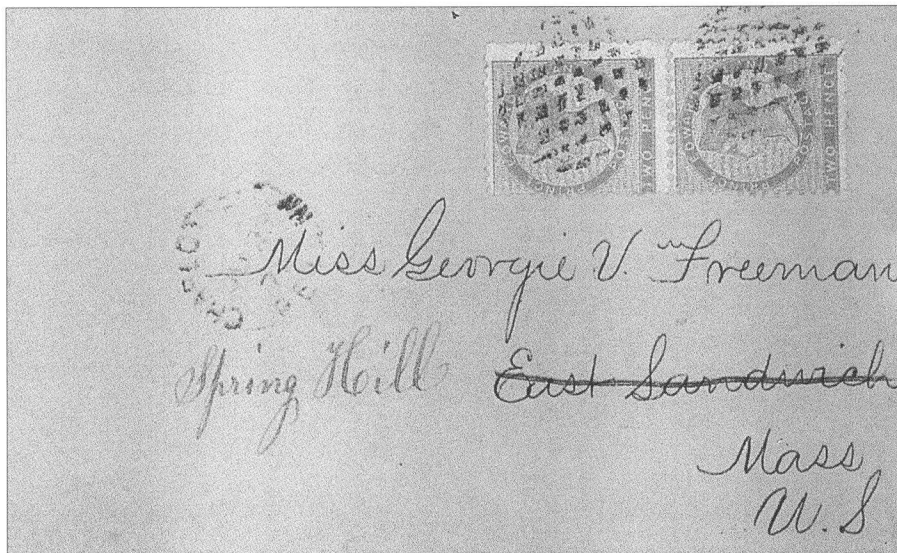 TWO PENCE TWO PENCE
Miss Georgie V. Freeman
Spring Hill East Sandwich
Mass
U.S